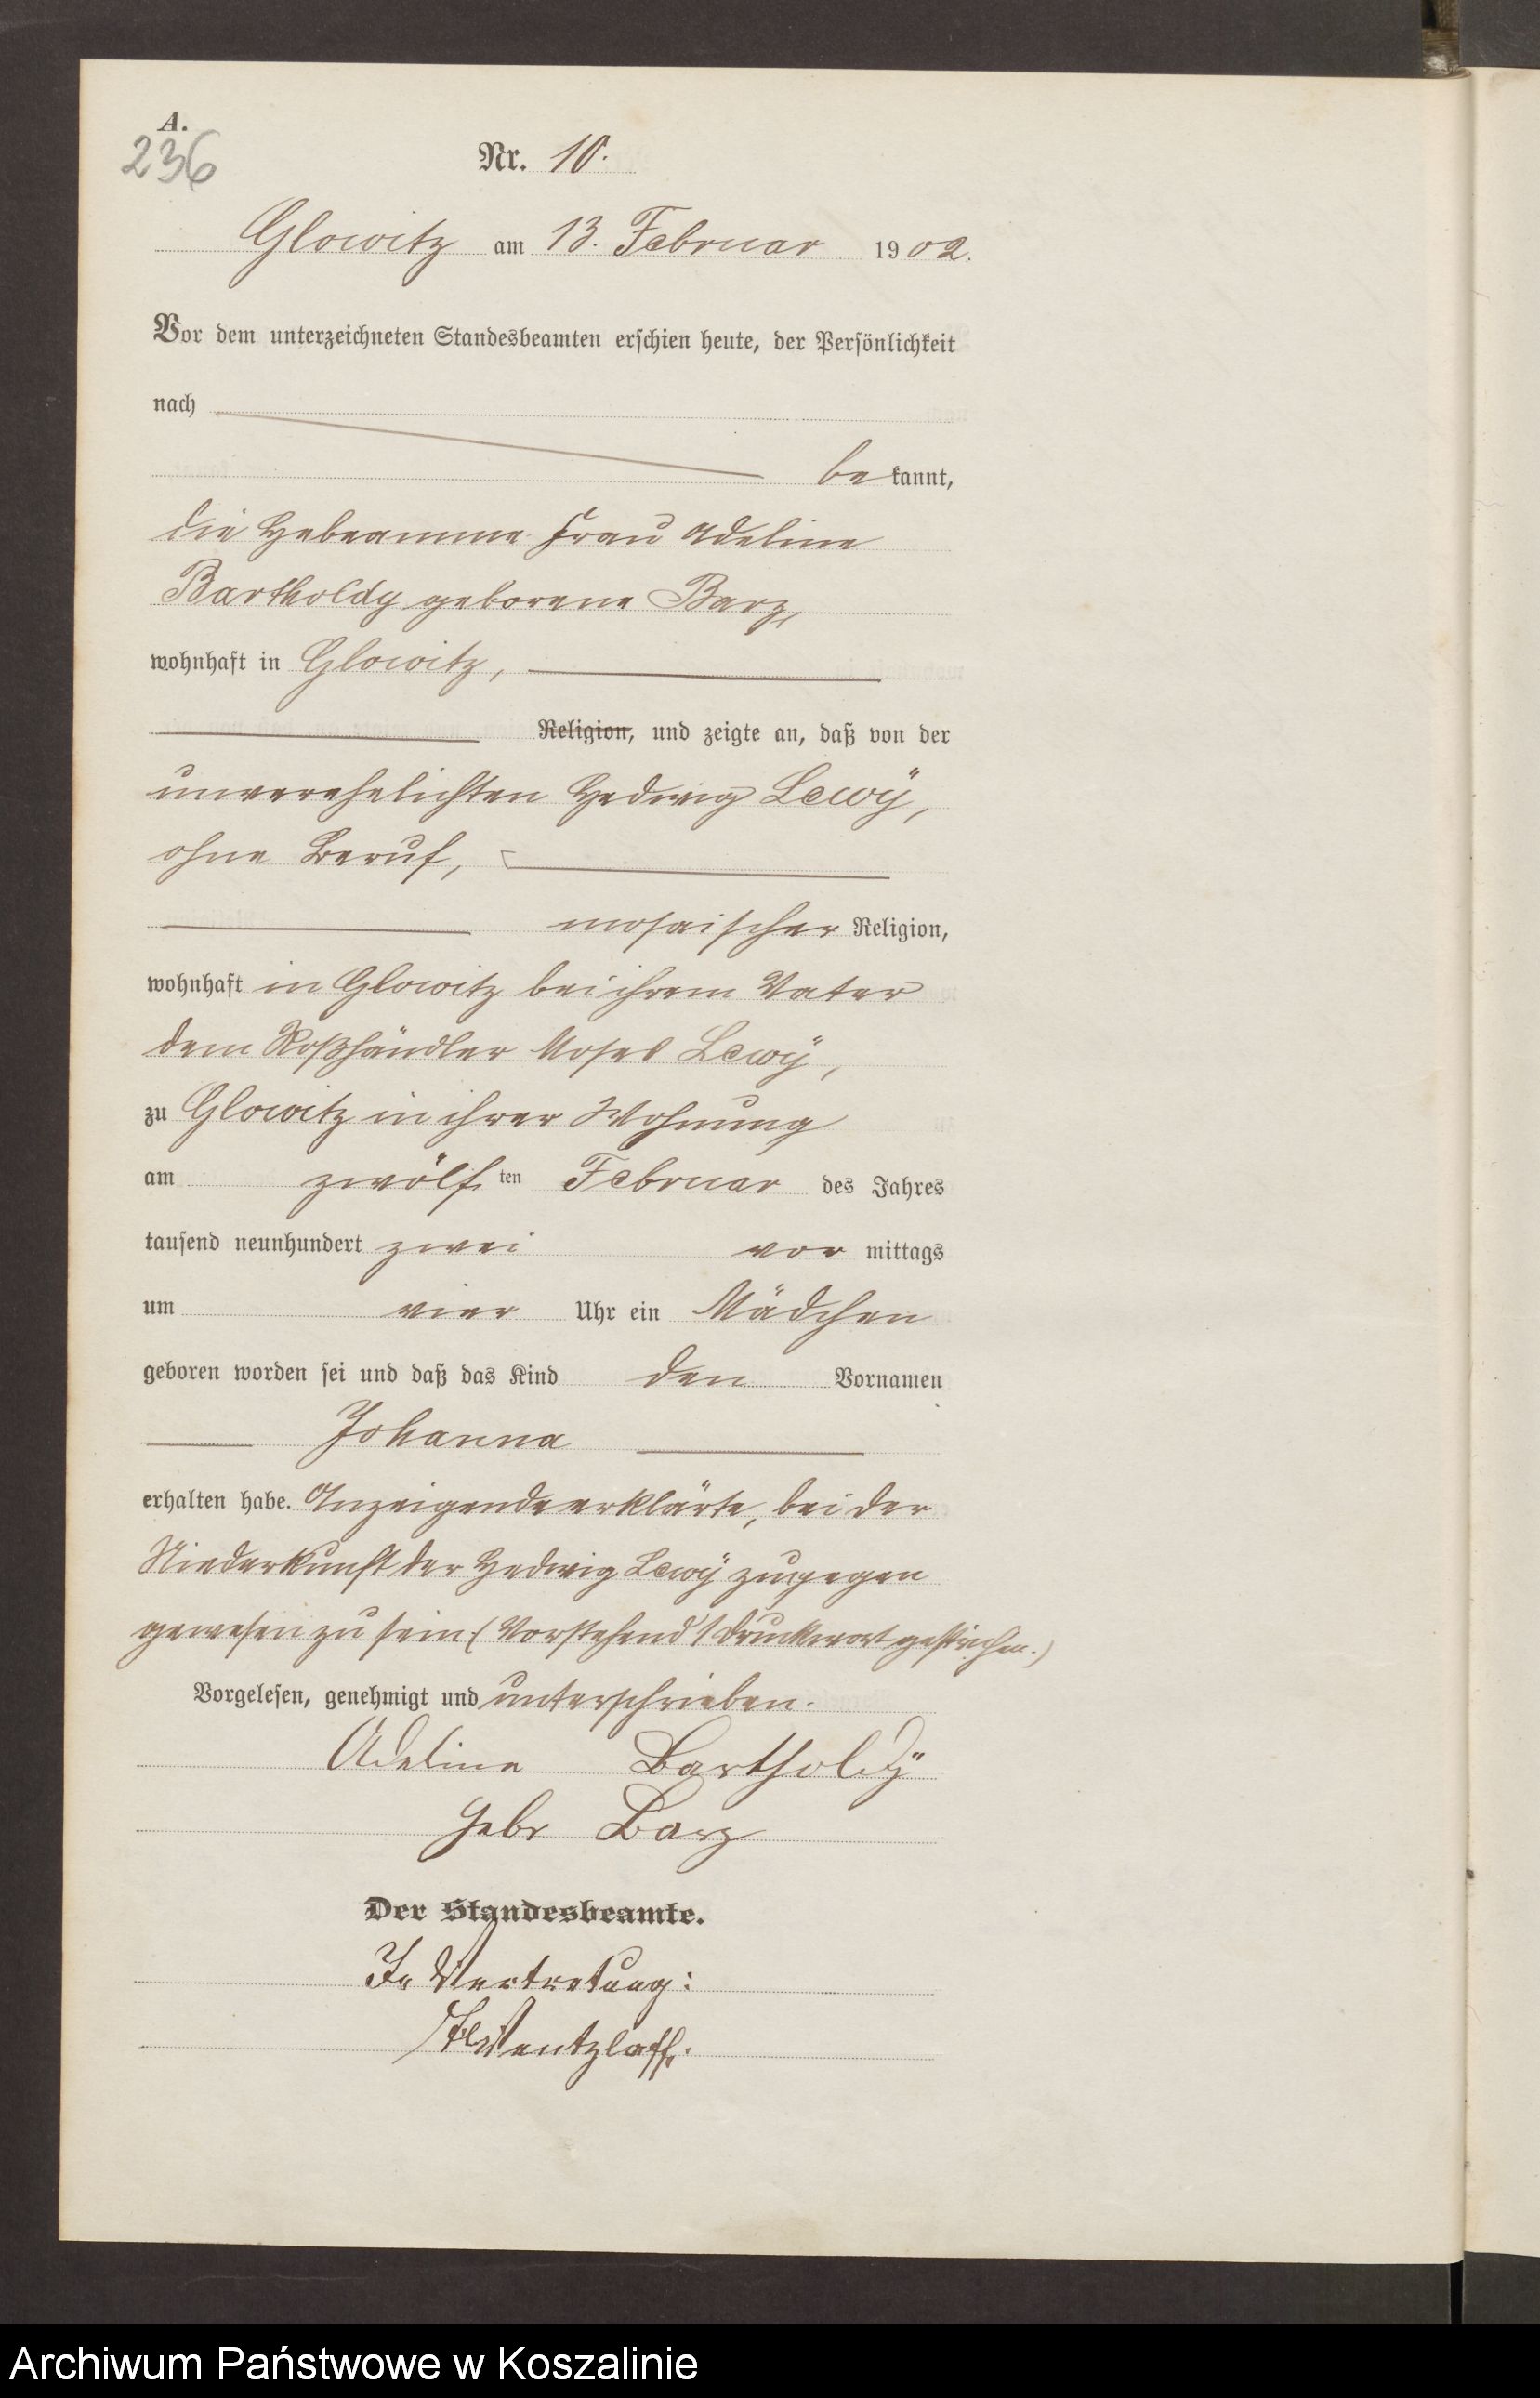 A.
236
Nr. 10.
Glowitz am 13. Februar 1902.
Vor dem unterzeichneten Standesbeamten erschien heute, der Persönlichkeit
nach
be kannt,
die Hebeamme Frau Adeline
Bartholdy geborene Barz,
wohnhaft in Glowitz,
Religion, und zeigte an, daß von der
unverehelichten Hedwig Lewÿ,
ohne Beruf,
mosaischer Religion,
wohnhaft in Glowitz bei ihrem Vater
dem Roßhändler Moses Lewÿ,
zu Glowitz in ihrer Wohnung
am zwölf ten Februar des Jahres
tausend neunhundert zwei vor mittags
um vier Uhr ein Mädchen
geboren worden sei und daß das Kind den Vornamen
Johanna
erhalten habe. Anzeigende erklärte, bei der
Niederkunft der Hedwig Lewÿ zugegen
gewesen zu sein. (Vorstehend 1 Druckwort gestrichen.)
Vorgelesen, genehmigt und unterschrieben.
Adeline Bartholdÿ
Gebr Barz
Der Standesbeamte.
In Vertretung:
Wentzlaff.
Archiwum Państwowe w Koszalinie